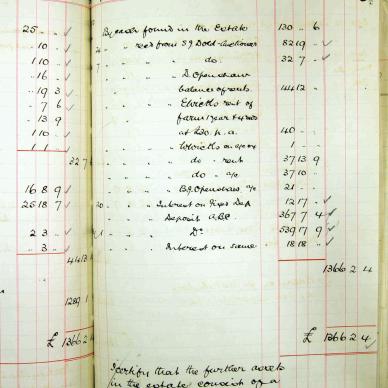 25 " "
" 10 "
1 10 "
" 16 "
" 19 3
" 7 6
" 13 9
1 10 "
1 1 "
32 7
16 8 9
25 18 7
2 3 "
" 3 "
44 13
1289 1
£ 1366 2
By cash found in the Estate 130 " 6
" " recd from S J Dodd 82 19 "
" " " do. 32 7 "
" " " D. Openshaw
balance of rents 144 12 "
" " " rent of
farm 1 year
at £20. p.a. 40 " "
" " "
" " " do rent 37 13 9
" " " do 37 10 "
" " " Openshaw 21 " "
20 " " Interest on Fixed Dep 12 17 "
" " Deposit A.B.C. 367 7 4
" " Do 539 17 9
" " Interest on same 18 18 "
1366 2 4
£ 1366 2 4
I certify that the further assets
in the estate consist of a